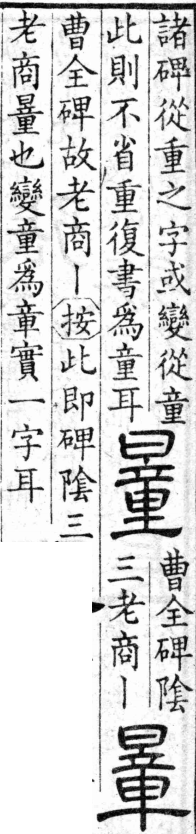 諸碑從重之字或變從童
此則不省重復書爲童耳
量
曹全碑陰
三老商丨
量
曹全碑故老商丨按此即碑陰三
老商量也變童爲實一字耳